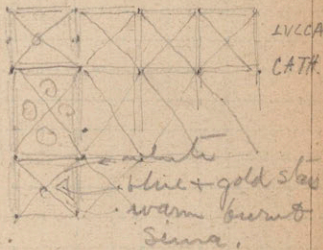 LUCCA
CATH.
white
blue + gold stars
warm burnt
Sienna.